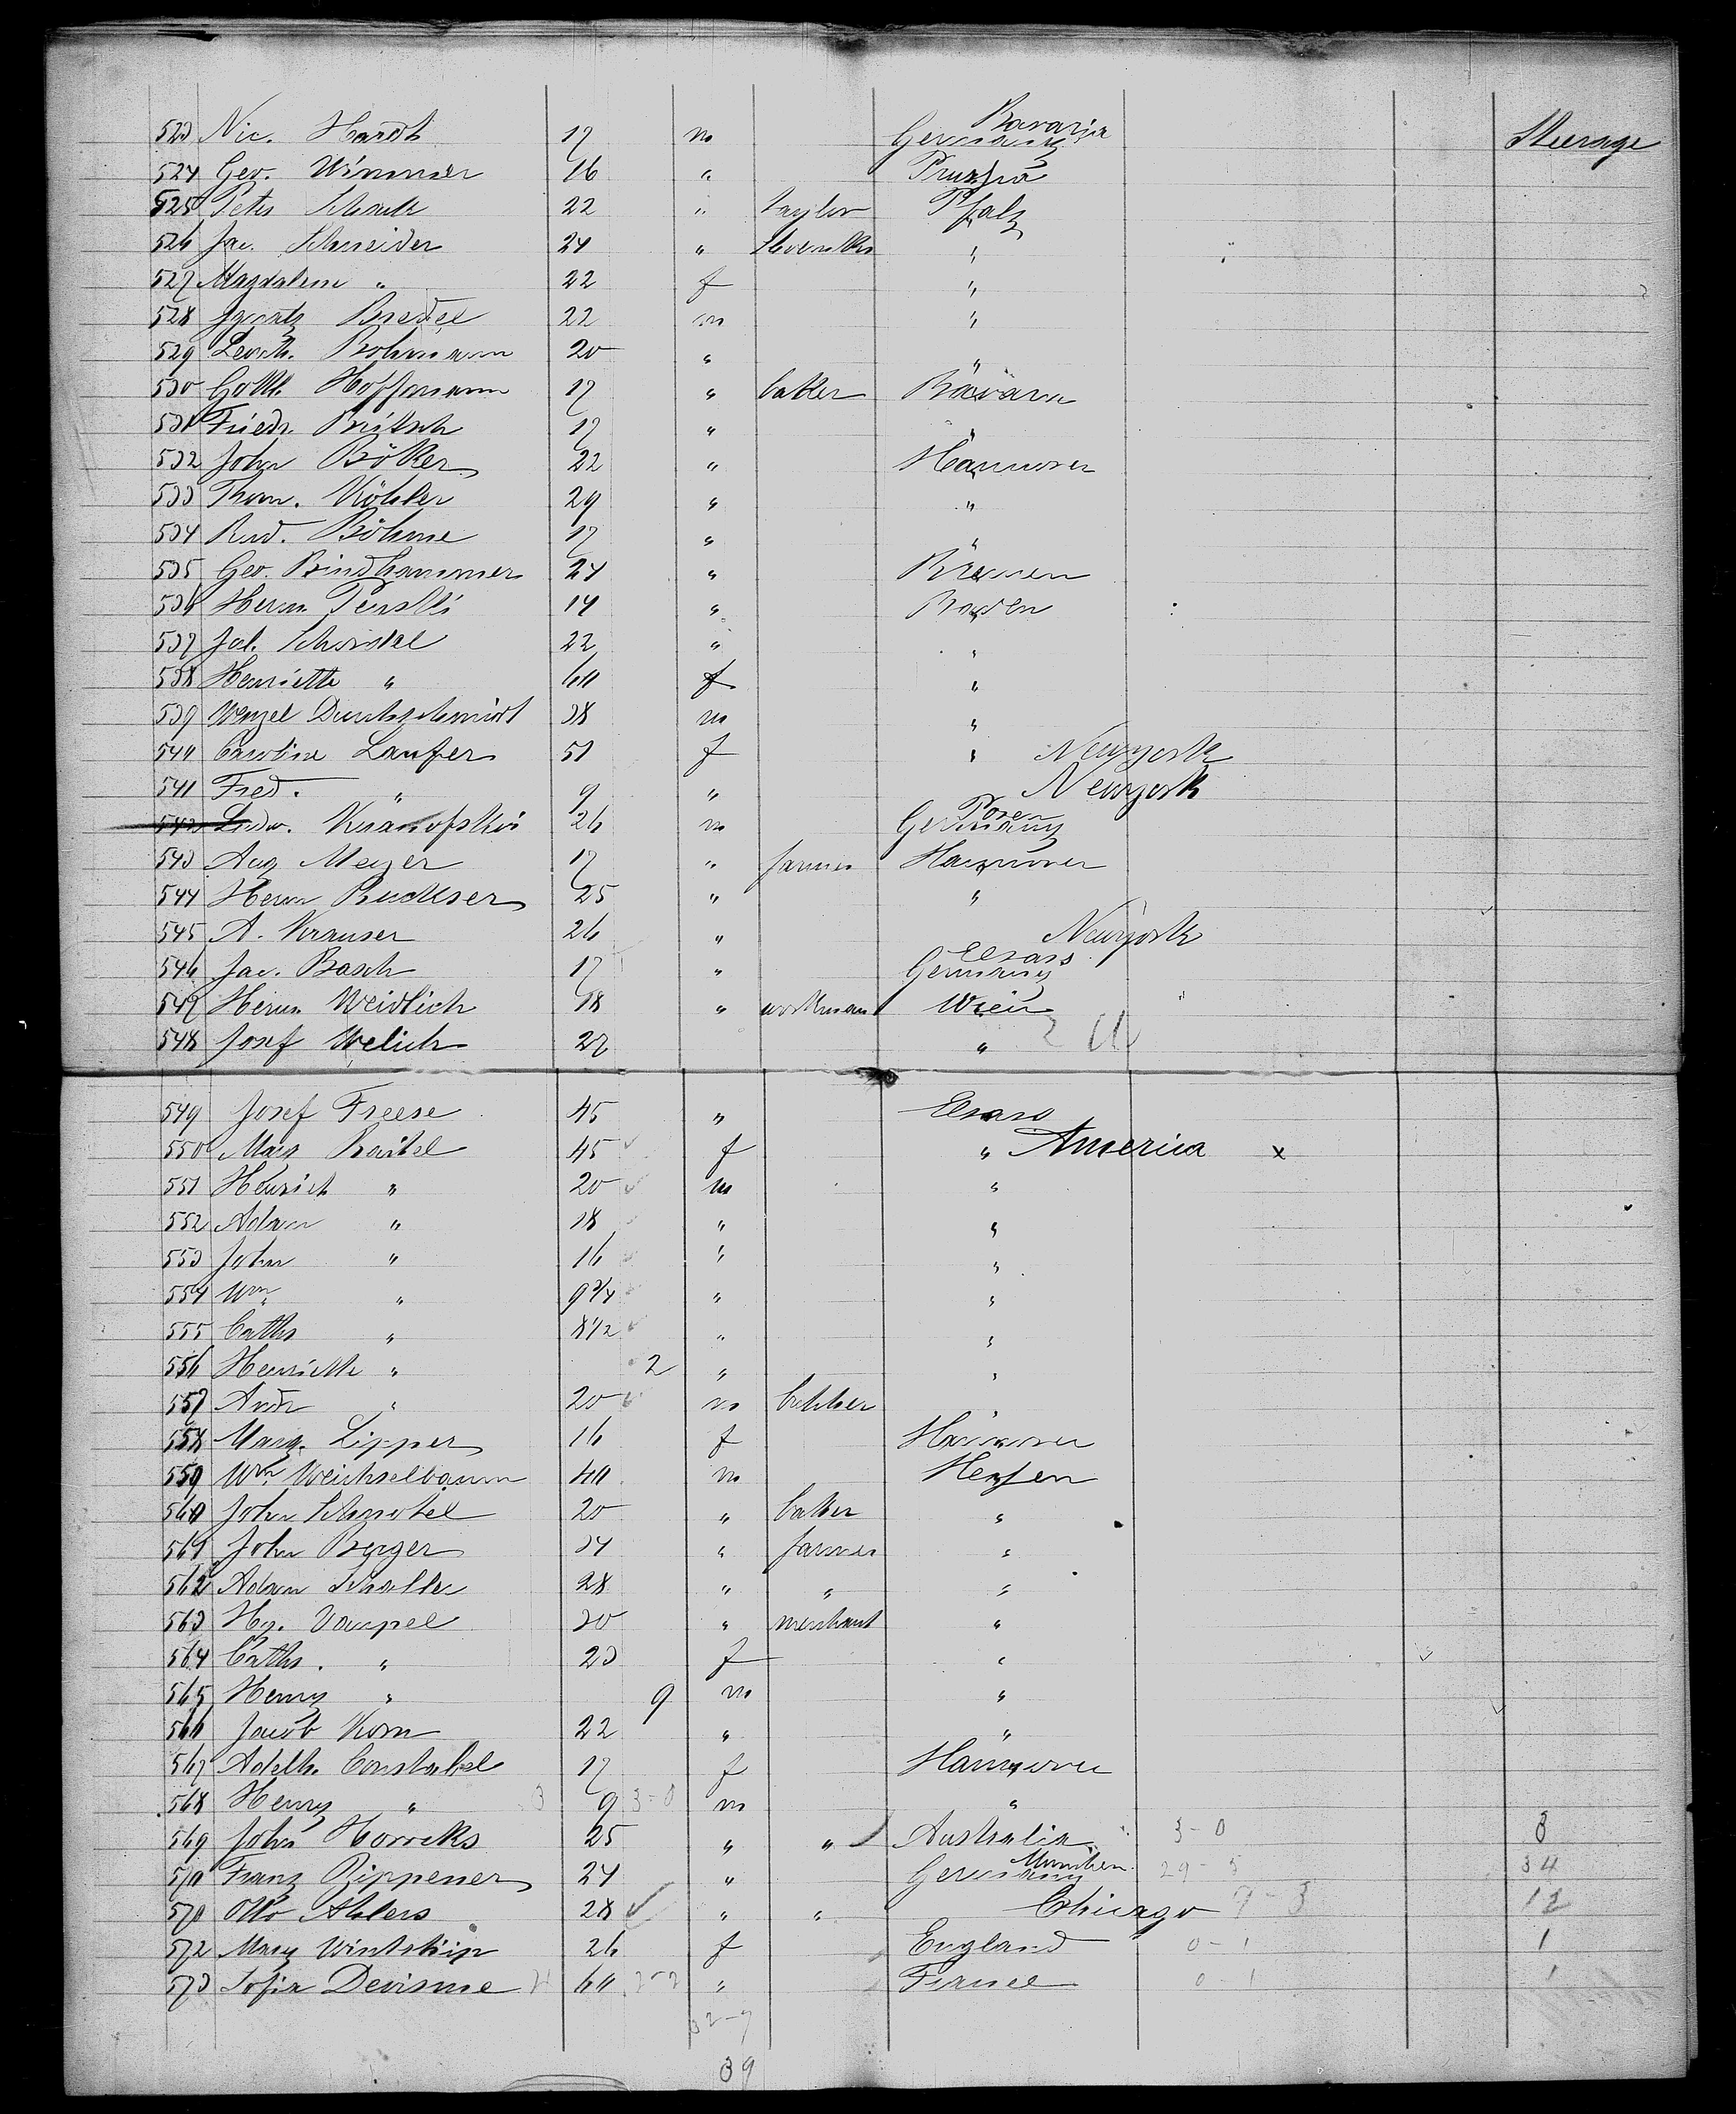 523 Nic. Hardt 17 m Germany Bavaria Steerage
524 Geo. Wimmer 16 " Prussia
525 Peter Schenk 22 " taylor Pfalz
526 Jac. Schneider 24 " "
527 Magdalene " 22 f "
528 Ignatz Bredel 22 m "
529 Leonh. Bohmann 20 " "
530 Gottl. Hoffmann 17 " baker Bavaria
531 Friedr. Britsch 17 " "
532 John Böker 22 " Hannover
533 Thom. Köhler 29 " "
534 Rud. Böhme 17 " "
535 Geo. Bindhammer 24 " Bremen
536 Herm. 14 " Baden
537 22 " "
538 Henriette " 60 f "
539 Wenzel 38 m "
540 Caroline Laufer 51 f " Newyork
541 Fred. " 9 " Newyork
542 26 m Germany Posen
543 Aug Meyer 17 " farmer Hannover
544 Herm 25 " "
545 A. Krauser 26 " Newyork
546 Jac. Basch 17 " Germany Elsass
547 Herm Weidlich 18 " workman Wien
548 Josef Welich 27 "
549 Josef Freese 45 " Elsass
550 45 f " America x
551 Heinrich " 20 m "
552 Adam " 18 " "
553 John " 16 " "
554 Wm " 9 3/4 " "
555 Cath " 8 1/2 " "
556 Henriette " 2 " "
557 Andr " 20 m "
558 Marg. Lipper 16 f Hannover
559 Wm Weichselbaum 40 m Hessen
560 John 20 " baker "
561 John Berger 34 " farmer "
562 Adam 28 " " "
563 Hy. Vaupel 30 " merchant "
564 Cath. " 23 f "
565 Henry " 9 m "
566 Jacob Korn 22 " "
567 Adelh. Constabel 17 f Hannover
568 Henry " 3 9 3-0 m "
569 John Horroks 25 " " Australia 3-0 3
570 Franz Rippener 24 " Germany München 29-5 34
570 Otto Ahlers 28 " " Chicago 7-3 12
572 Mary Wintship 26 f England 0-1 1
573 Sofia Devisme 60 2-2 " France 0-1 1
32-7
39